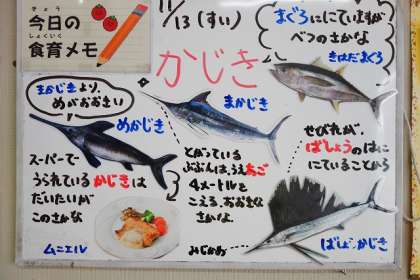 きょう
今日の
しょくいく
食育メモ
11/13(すい)
かじき
まぐろににていますが
べつのさかな
きはだまぐろ
まかじきより、
めがおおきい
めかじき
まかじき
スーパーで
うられているかじきは
だいたいが
このさかな
ムニエル
とがっている
ぶぶんは、うえあご
4メートルを
こえる、おおきな
さかなよ。
せびれが、
ばしょうのはに
にていることから
ばしょうかじき